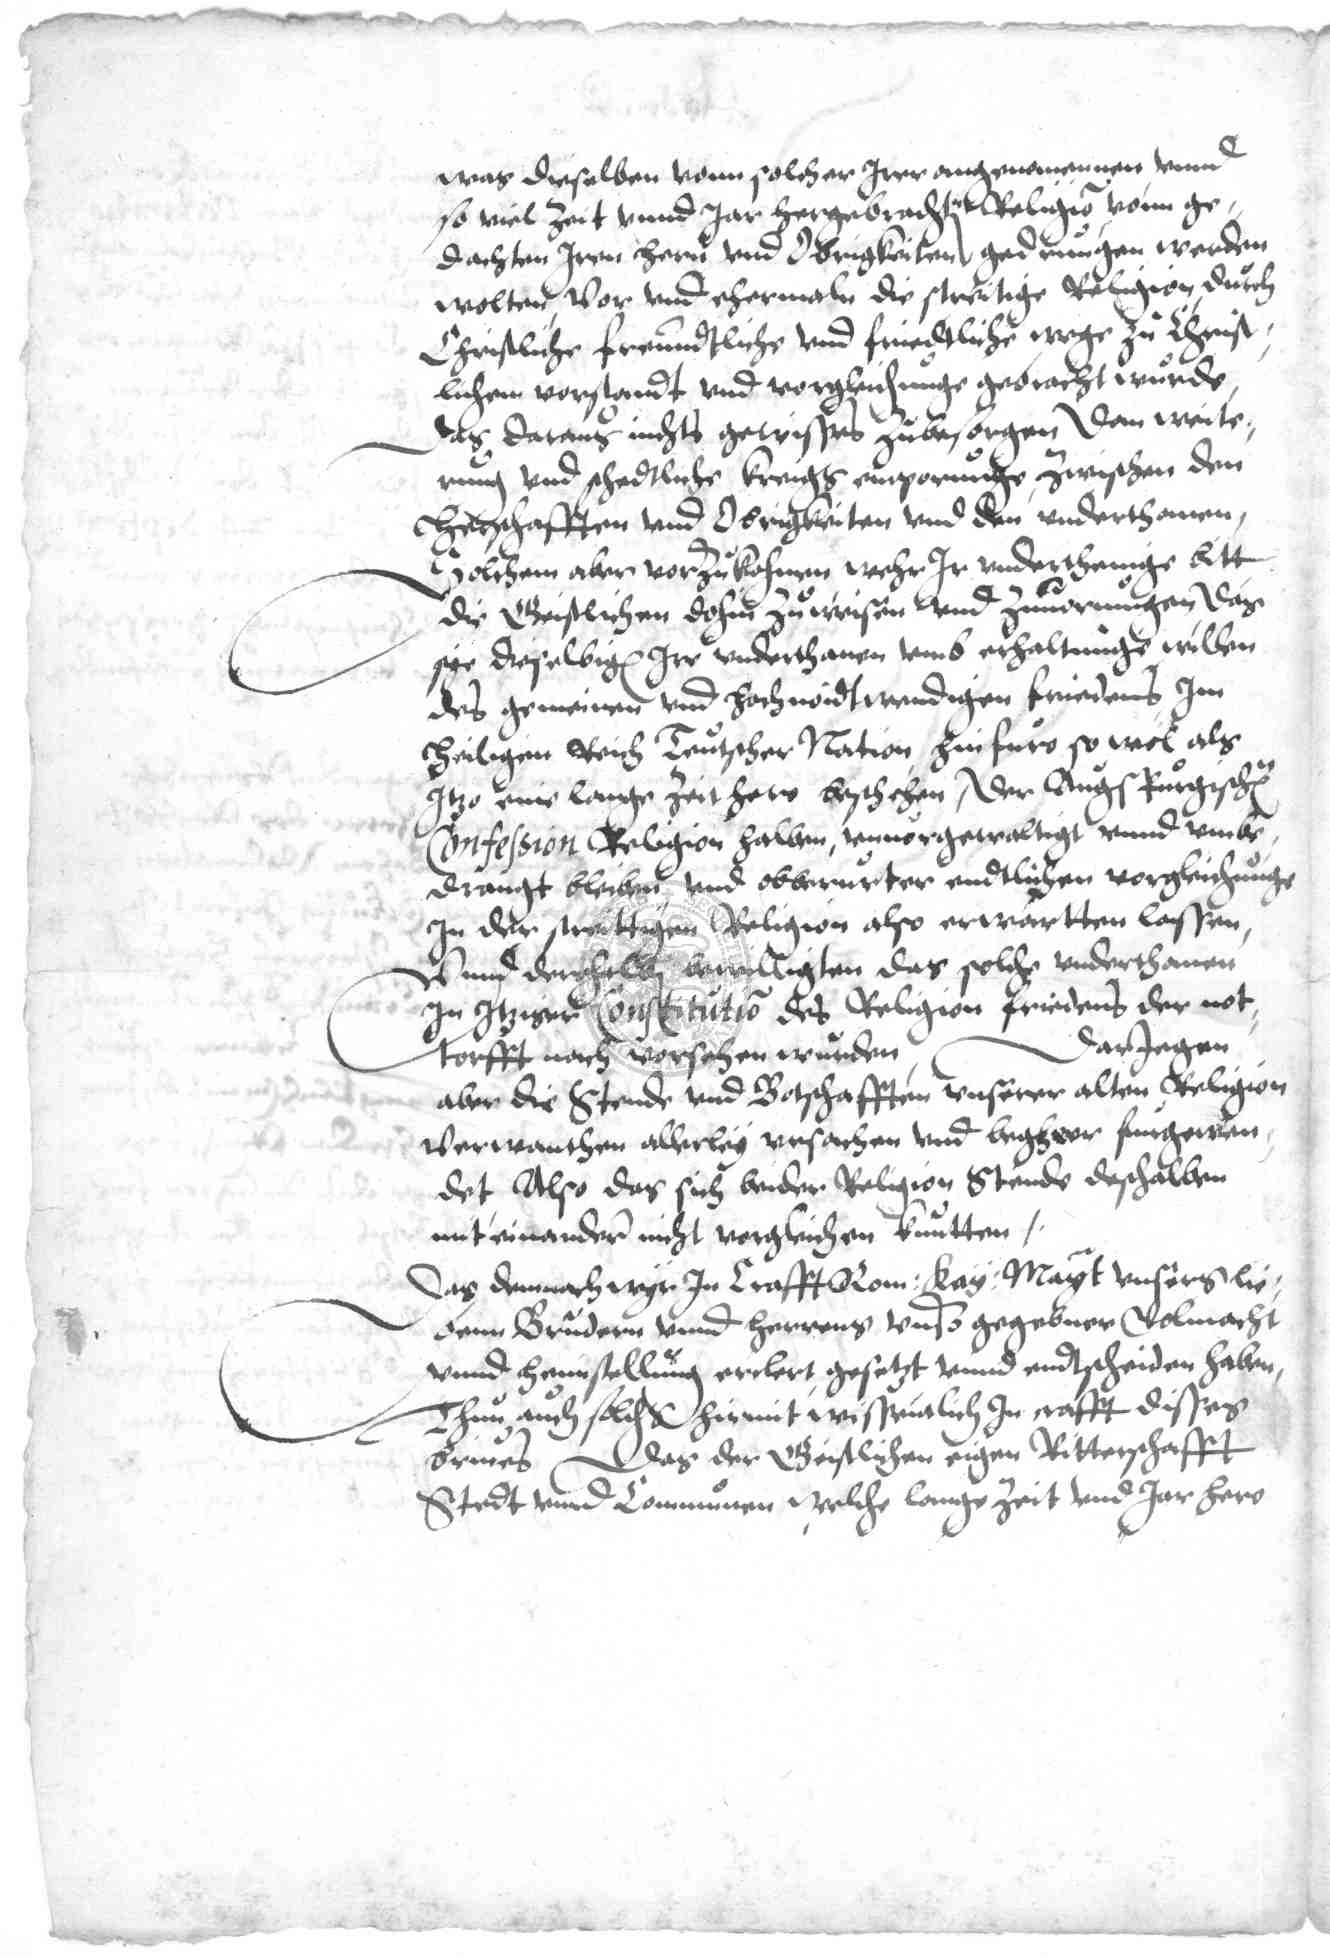 was dieselben vonn solcher Irer angenomennen vnnd
so viel Zeit vnnd Jar hergebrachtē Religiō vonn ge-
dachten Iren hern vnd Obrigkeiten gedrungen werden
wolten, Vor vnd ehermaln die streitige Religion, durch
Christliche freundtliche vnd friedtliche wege zu Christ-
lichem vorstandt vnd vorgleichunge gebracht wurde,
Das daraus nichts gewisses zubesorgen Dan weite-
rung vnd schedtliche kreigs emporunge zwischen den
Herschafften vnd Obrigkeiten vnd den vnderthanen,
Solchem aber vorzukohmen wehr Ir vnderthenige bitt
die Geistlichen dohin zu weisen vnd zuuormugen, Das
sye dieselbigē Ire vnderthanen vmb erhaltunge willen
des gemeinen vnd hochnoidtwendigen friedens Im
Heiligen Reich Teutscher Nation, hinfuro so wol als
Itzo eine lange Zeit hero beschehen, der Augspurgischē
Confession Religion halben, vnuorgewaltigt vnnd vmbe-
drangt bleiben vnd obberurter endtlichen vorgleichunge
In der streittigen Religion also erwartten lassen,
Vnnd derhalbē bewilligten das solche vnderthanen
In Itziger Constitutiō des Religion friedens der not-
torfft nach vorsehen wurden, Darjegen
aber die Stende vnd Botschafften vnserer alten Religion
Verwanthen allerley vrsachen vnd beghwer furgewen-
det Also das sich beider Religion Stende deshalben
mit einander nicht vorgleichen kuntten /.
Das demnach wyr In Crafft Rom: Kay: Mayt vnsers lie-
benn Brudern vnnd herrens vns gegebner Volmacht
vnnd heimstellung erclert, gesetzt vnnd endtscheiden haben,
Thun auch solchs hirmit wissentlich In crafft disses
brieues Das der Geistlichen eigen Ritterschafft
Stedt vnnd Communen welche lange Zeit vnd Jar hero